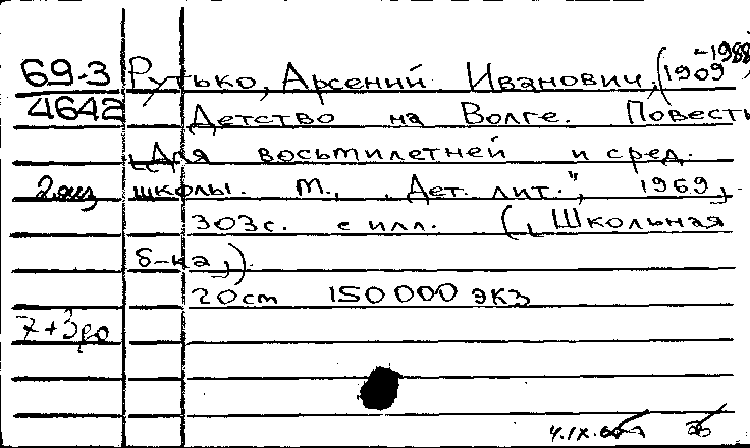 69-3 Рутько, Арсений Иванович, (1909 -1988)
4642 Детство на Волге. Повесть
[Для восьмилетней и сред.
2 экз школы. М., „Дет. лит.", 1969,
303с. с илл. ([Школьная
б-ка]).
20см 150000 экз
7+3